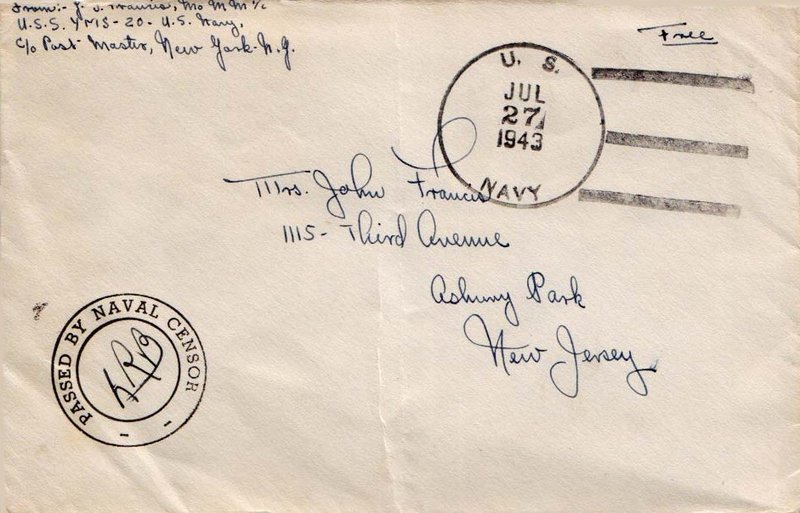 From:- J. J. Francis, Mo M M 1/c
U.S.S. YMS-20- U.S. Navy,
C/o Post Master, New York. N.Y.
Free
U. S.
JUL
27
1943
NAVY
Mrs. John Francis
1115- Third Avenue
Asbury Park
New Jersey
PASSED BY NAVAL CENSOR